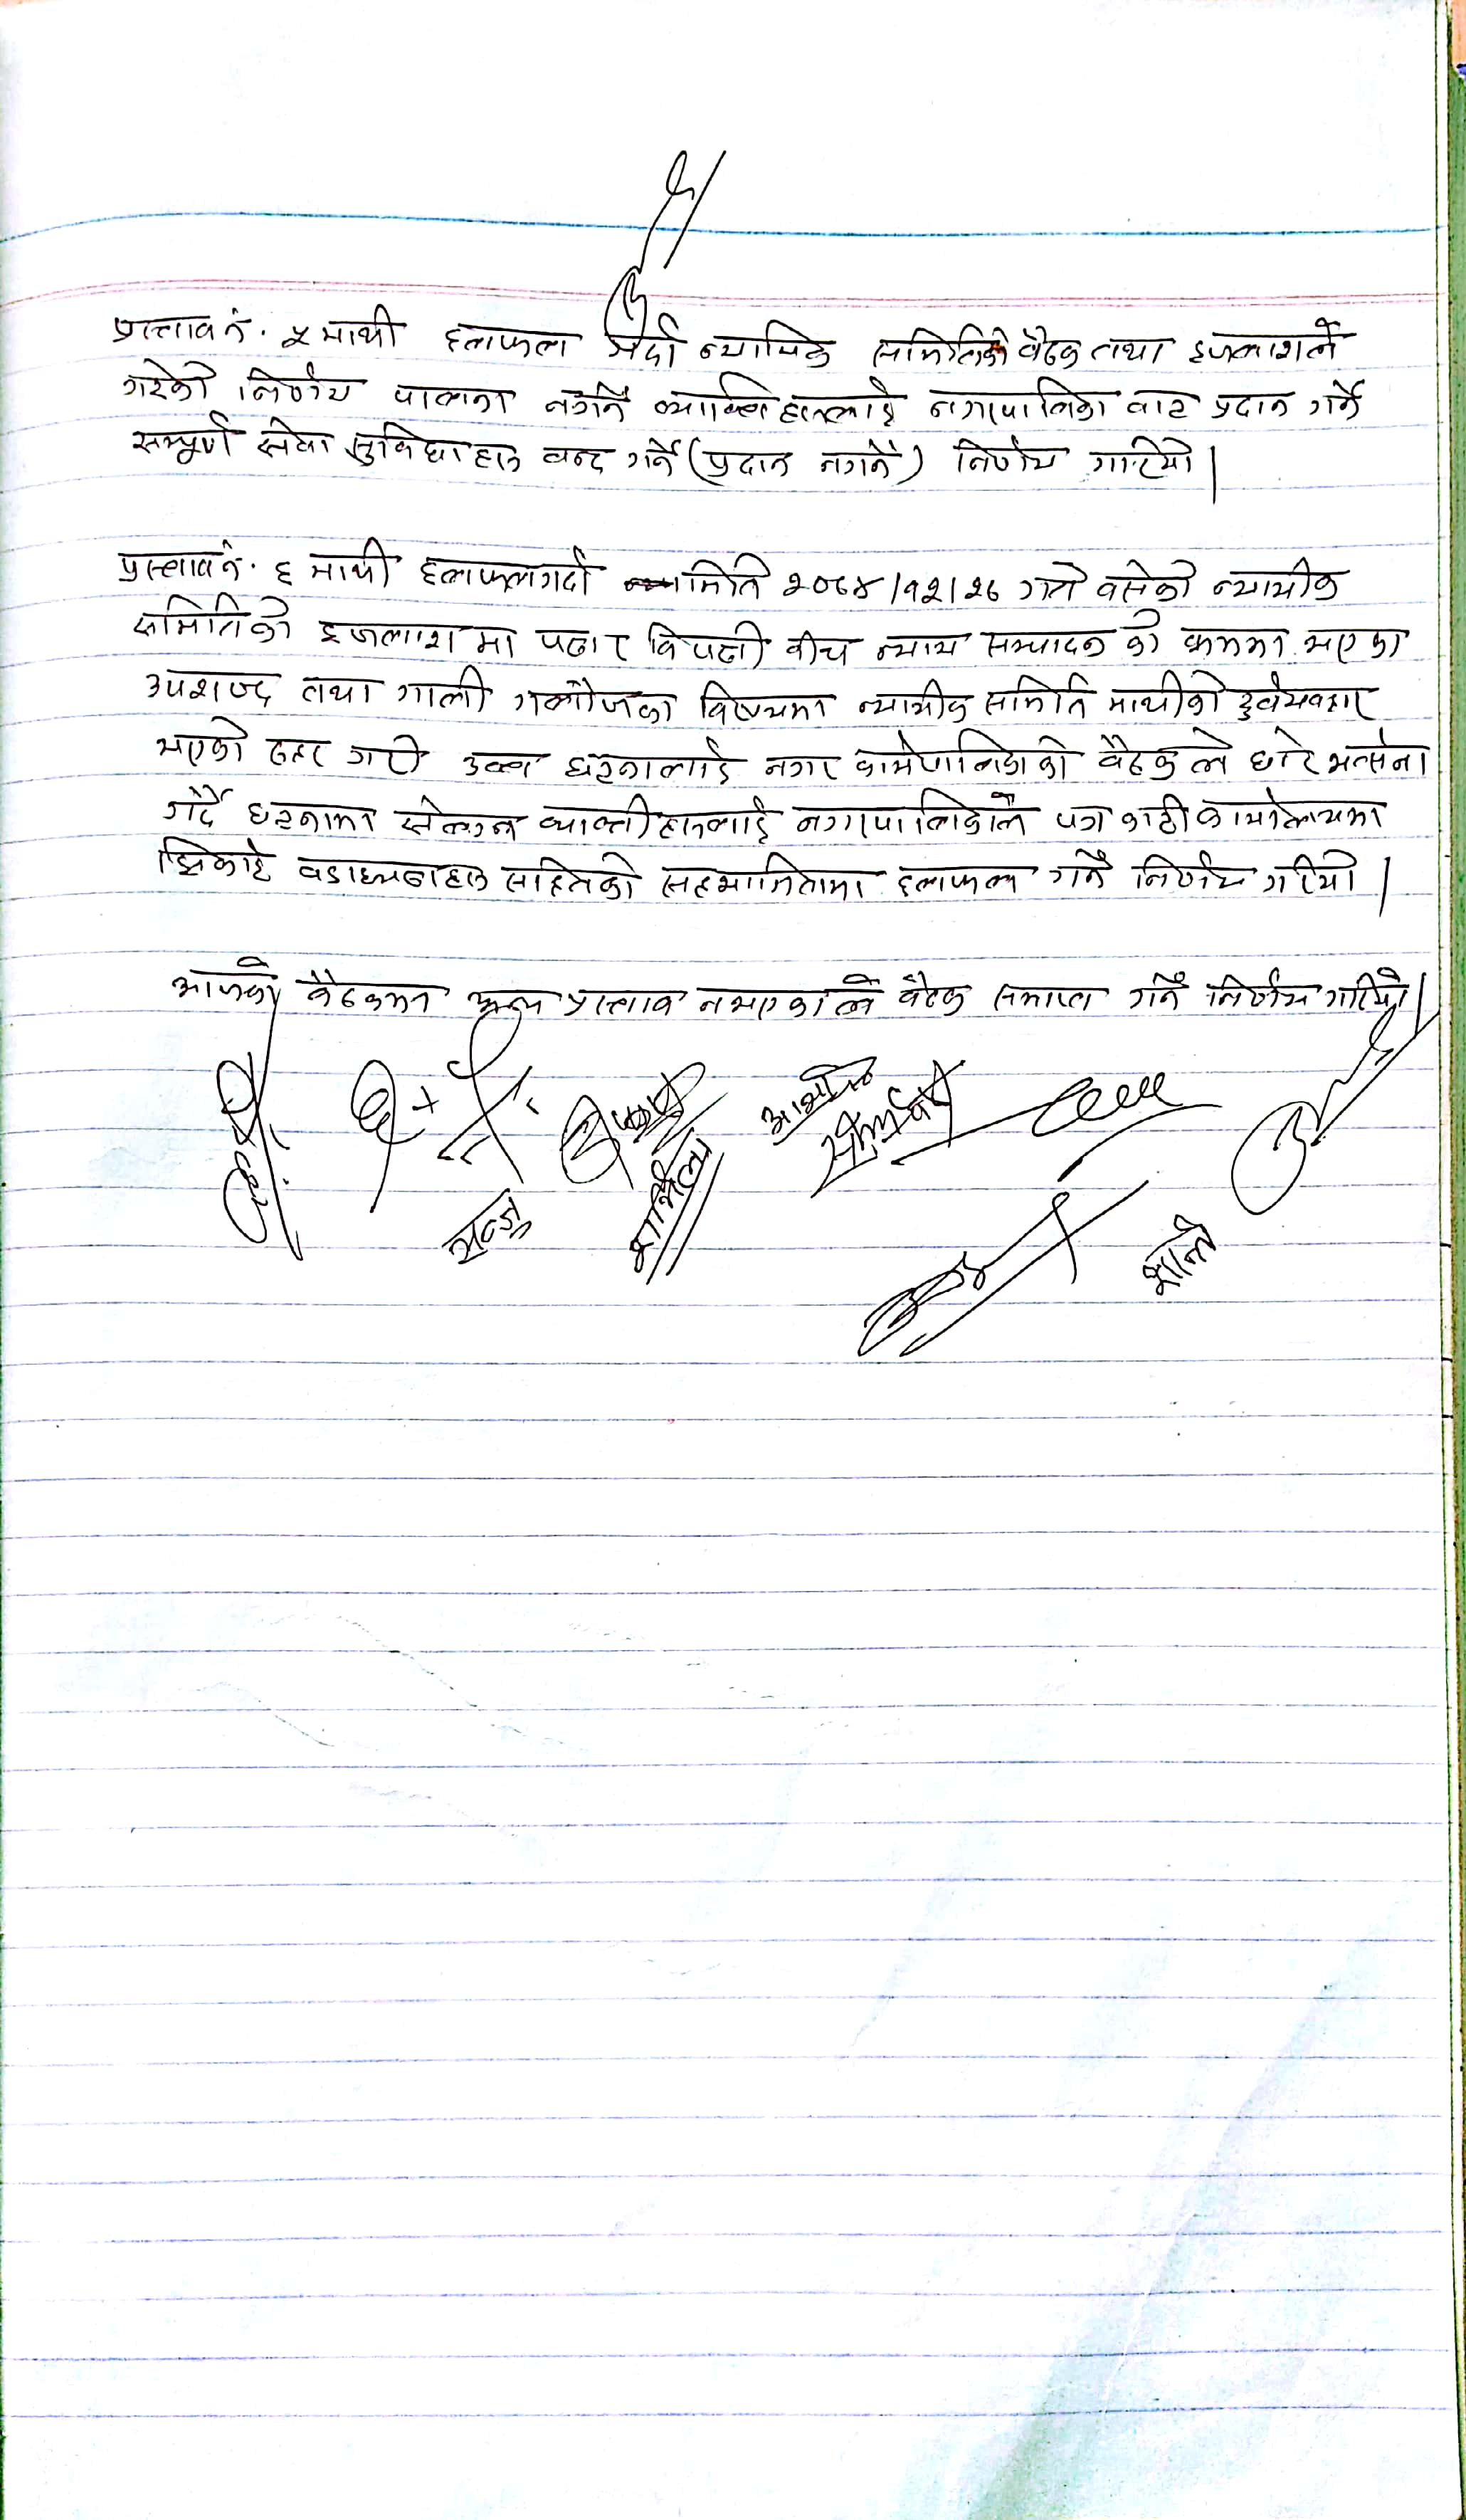 प्रस्ताव नं. ५ माथी छलफल गर्दा न्यायिक समितिको बैठक तथा इजलाशले
गरेको निर्णय पालना नगर्ने व्याक्ति हरुलाई नगरपालिका वाट प्रदान गर्ने
सम्पूर्ण सेवा सुविधाहरु वन्द गर्ने (प्रदान नगर्ने) निर्णय गरियो।
प्रस्ताव नं. ६ माथी छलफल गर्दा मिति २०७४/१२/२७ गते वसेको न्यायीक
समितिको इजलाश मा पक्ष र विपक्षी वीच न्याय सम्पादन को क्रममा भएका
अपशव्द तथा गाली गलौजका विषयमा न्यायीक समिति माथीको दुर्व्यवहार
भएको ठहर गरी उक्त घटनालाई नगर कार्यपालिकाको बैठक ले घोर भर्त्सना
गर्दै घटनामा संलग्न व्याक्ती हरुलाई नगरपालिकाले पत्र काटी कार्यालयमा
झिकाई वडाध्यक्षहरु सहितको सहभागितामा छलफल गर्ने निर्णय गरियो।
आजको बैठकमा अन्य प्रस्ताव नभएकाले बैठक समाप्त गर्ने निर्णय गरियो।